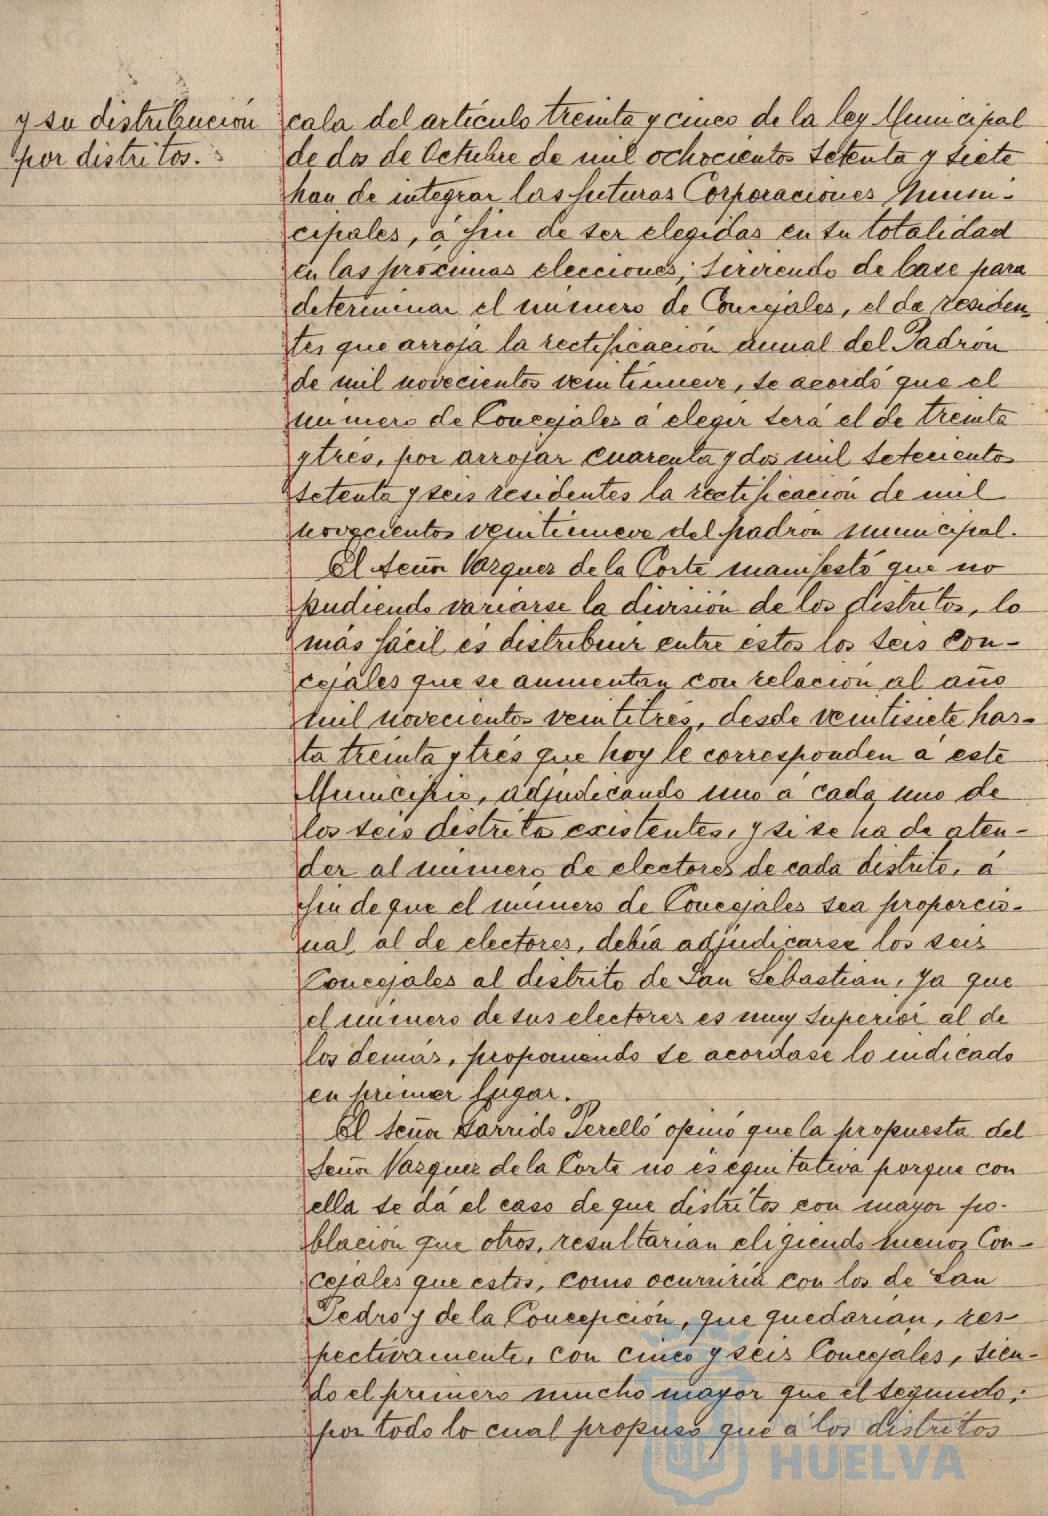 y su distribución
por distritos.
cala del artículo treinta y cinco de la ley Municipal
de dos de Octubre de mil ochocientos setenta y siete
han de integrar las futuras Corporaciones Muni-
cipales, á fin de ser elegidas en su totalidad
en las próximas elecciones; sirviendo de base para
determinar el número de Concejales, el de residen-
tes que arroja la rectificación anual del Padrón
de mil novecientos veintinueve, se acordó que el
número de Concejales á elegir será el de treinta
y tres, por arrojar cuarenta y dos mil setecientos
setenta y seis residentes la rectificación de mil
novecientos veintinueve del padrón municipal.
El señor Vázquez de la Corte manifestó que no
pudiendo variarse la división de los distritos, lo
más fácil és distribuir entre éstos los seis con-
cejales que se aumentan con relación al año
mil novecientos veintitrés, desde veintisiete has-
ta treinta y trés que hoy le corresponden á este
Municipio, adjudicando uno á cada uno de
los seis distritos existentes, y si se ha de aten-
der al número de electores de cada distrito, á
fin de que el número de Concejales sea proporcio-
nal al de electores, debía adjudicarse los seis
Concejales al distrito de San Sebastian, ya que
el número de sus electores es muy superior al de
los demás, proponiendo se acordase lo indicado
en primer lugar.
El señor Garrido Perelló opinó que la propuesta del
señor Vázquez de la Corte no és equitativa porque con
ella se dá el caso de que distritos con mayor po-
blación que otros, resultarían eligiendo menos Con-
cejales que estos, como ocurriría con los de San
Pedro y de la Concepción, que quedarían, res-
pectivamente, con cinco y seis Concejales, sien-
do el primero mucho mayor que el segundo;
por todo lo cual propuso que á los distritos
Ayuntamiento de
HUELVA